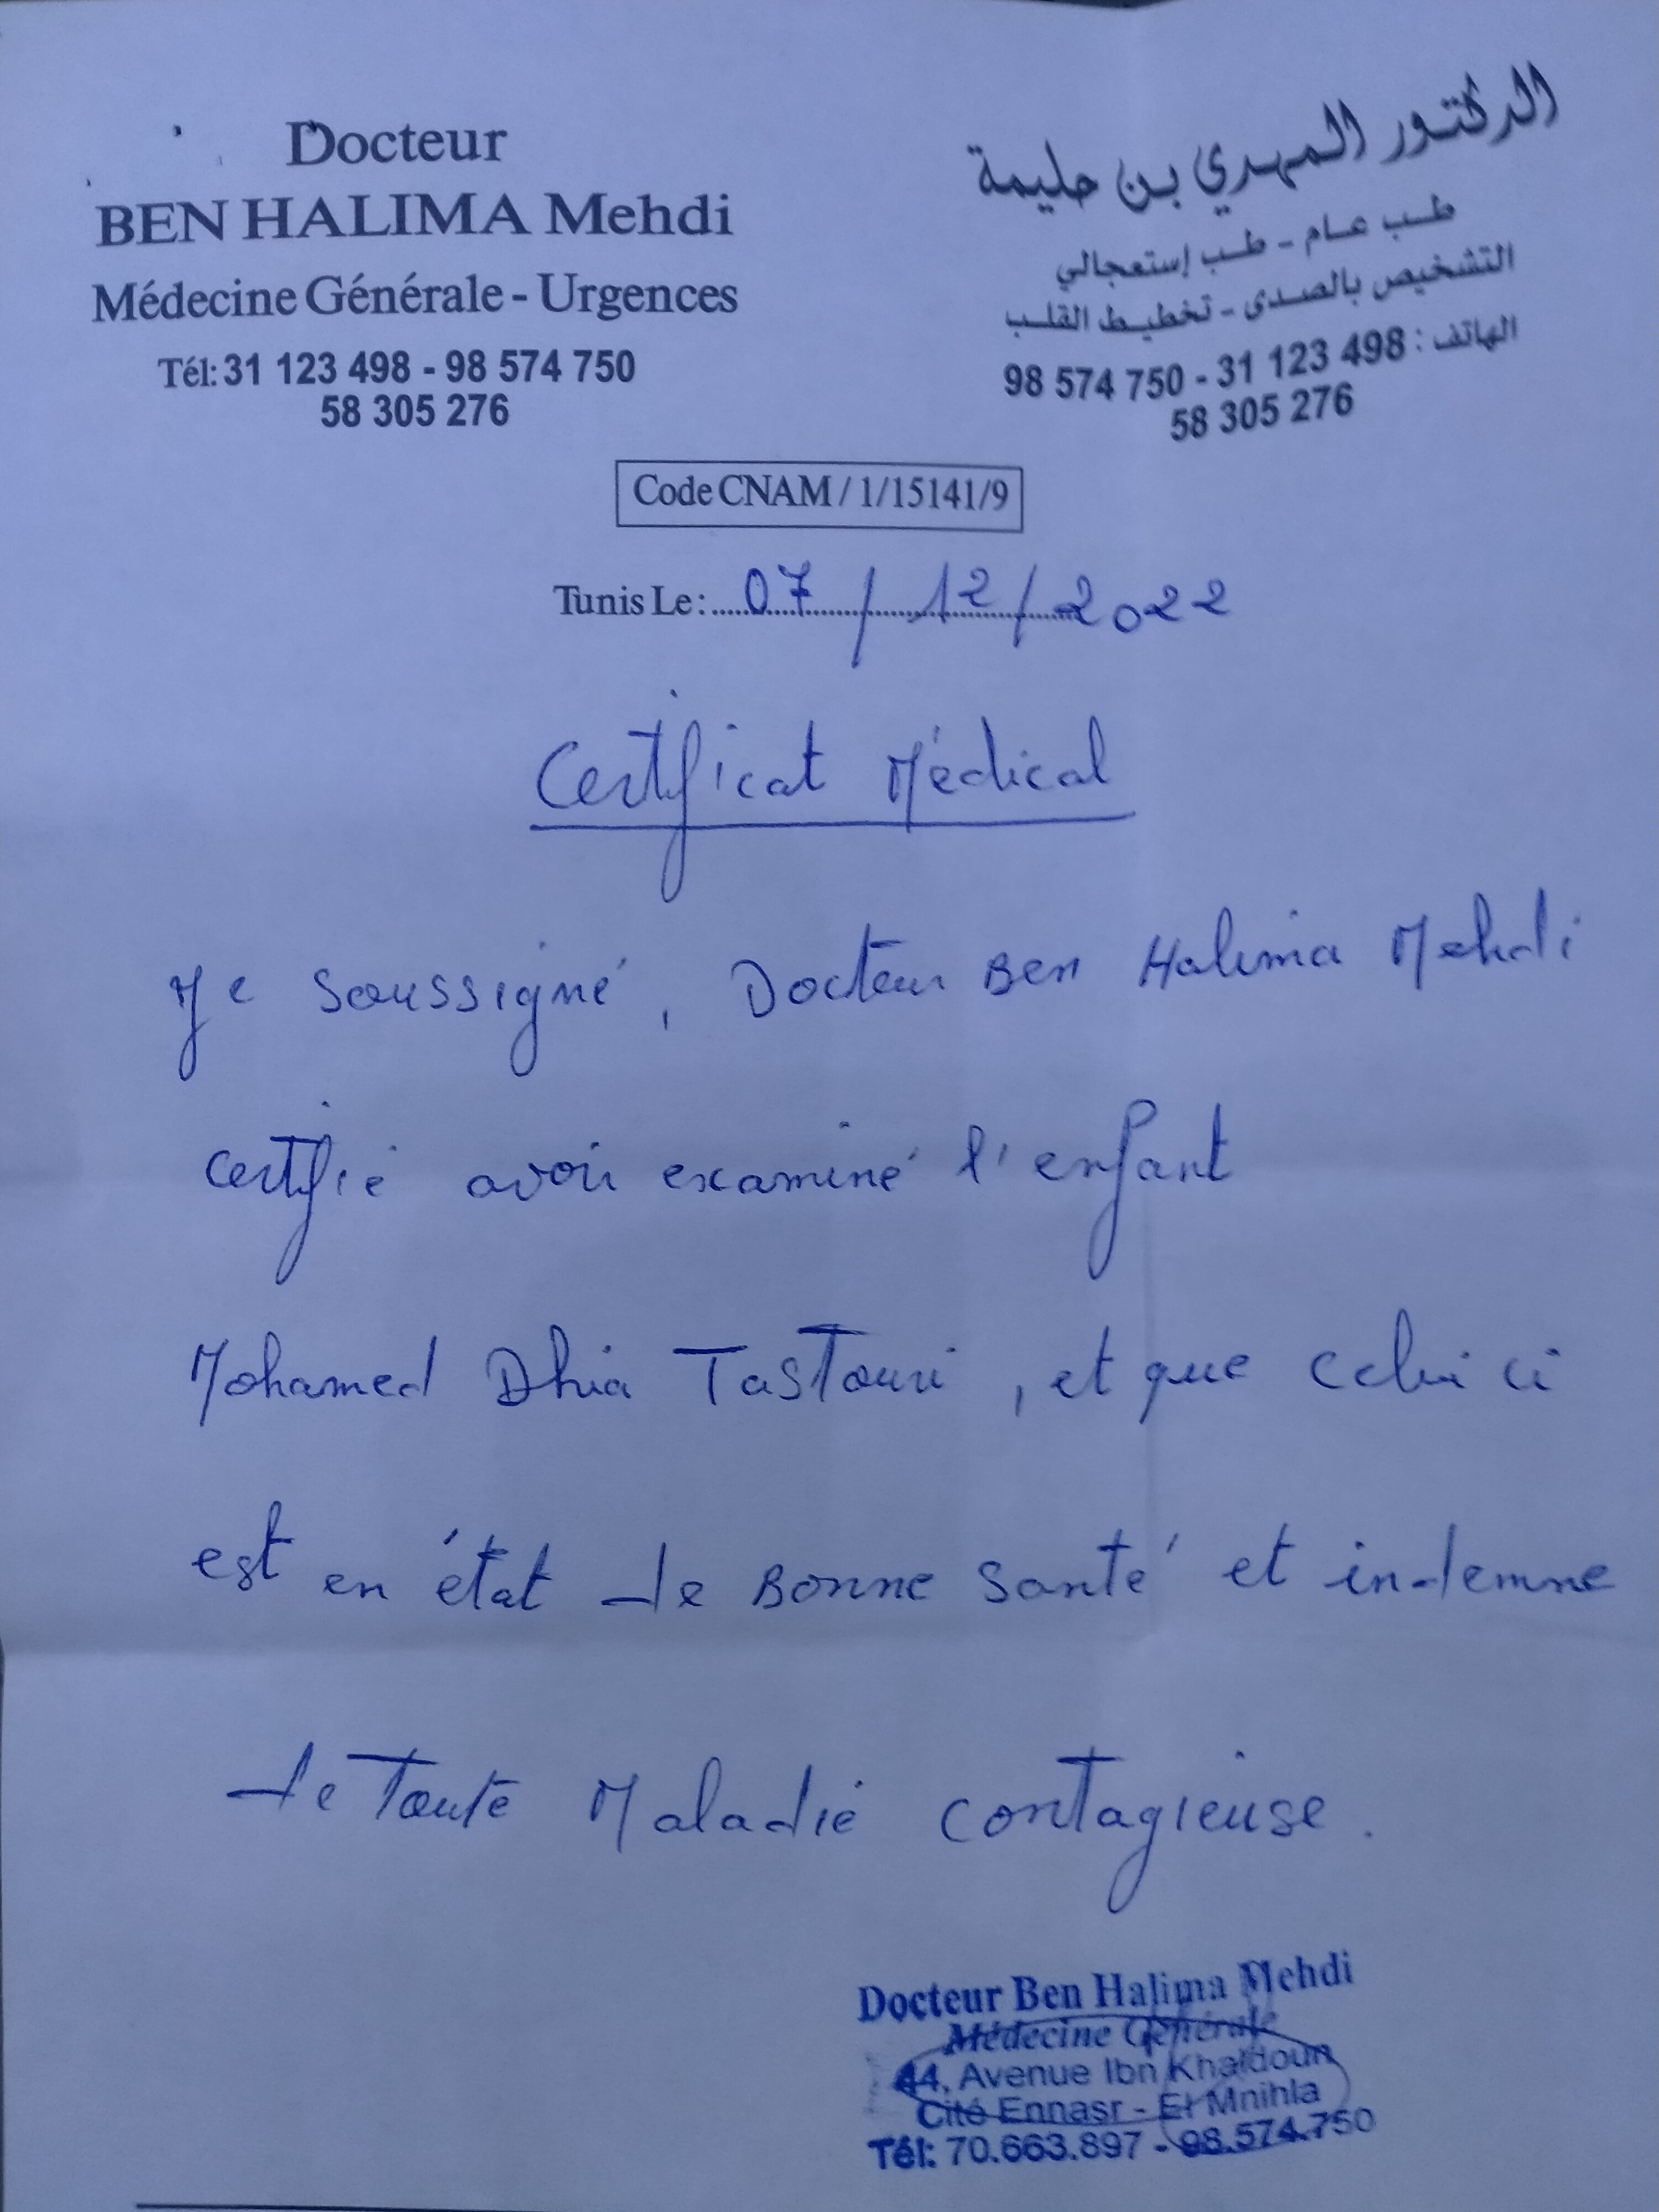 Docteur
BEN HALIMA Mehdi
Médecine Générale - Urgences
Tél: 31 123 498 - 98 574 750
58 305 276
الدكتور المهدي بن حليمة
طب عام - طب إستعجالي
التشخيص بالصدى - تخطيط القلب
الهاتف : 31 123 498 - 98 574 750
58 305 276
Code CNAM / 1/15141/9
Tunis Le : 07 / 12 / 2022
Certificat Médical
Je soussigné, Docteur Ben Halima Mehdi
certifie avoir examiné l'enfant
Mohamed Dhia Tastouri, et que celui ci
est en état de Bonne santé et indemne
de Toute Maladie contagieuse.
Docteur Ben Halima Mehdi
Médecine Générale
44, Avenue Ibn Khaldoun
Cité Ennasr - El Mnihla
Tél: 70.663.897 - 98.574.750